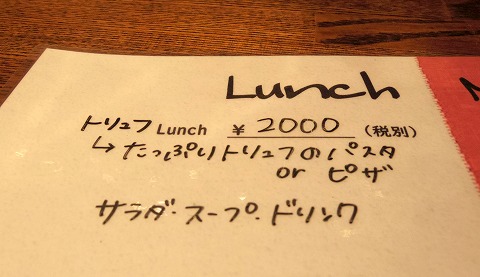 Lunch
トリュフ Lunch ￥2000 (税別)
↳たっぷりトリュフのパスタ
or ピザ
サラダ・スープ・ドリンク